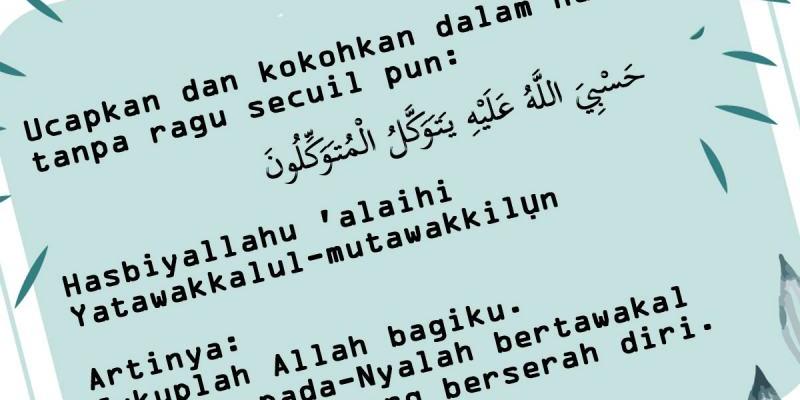 Ucapkan dan kokohkan dalam
tanpa ragu secuil pun:
حَسْبِيَ اللَّهُ عَلَيْهِ يَتَوَكَّلُ الْمُتَوَكِّلُونَ
Hasbiyallahu 'alaihi
Yatawakkalul-mutawakkilụn
Artinya:
Allah bagiku.
bertawakal
berserah diri.